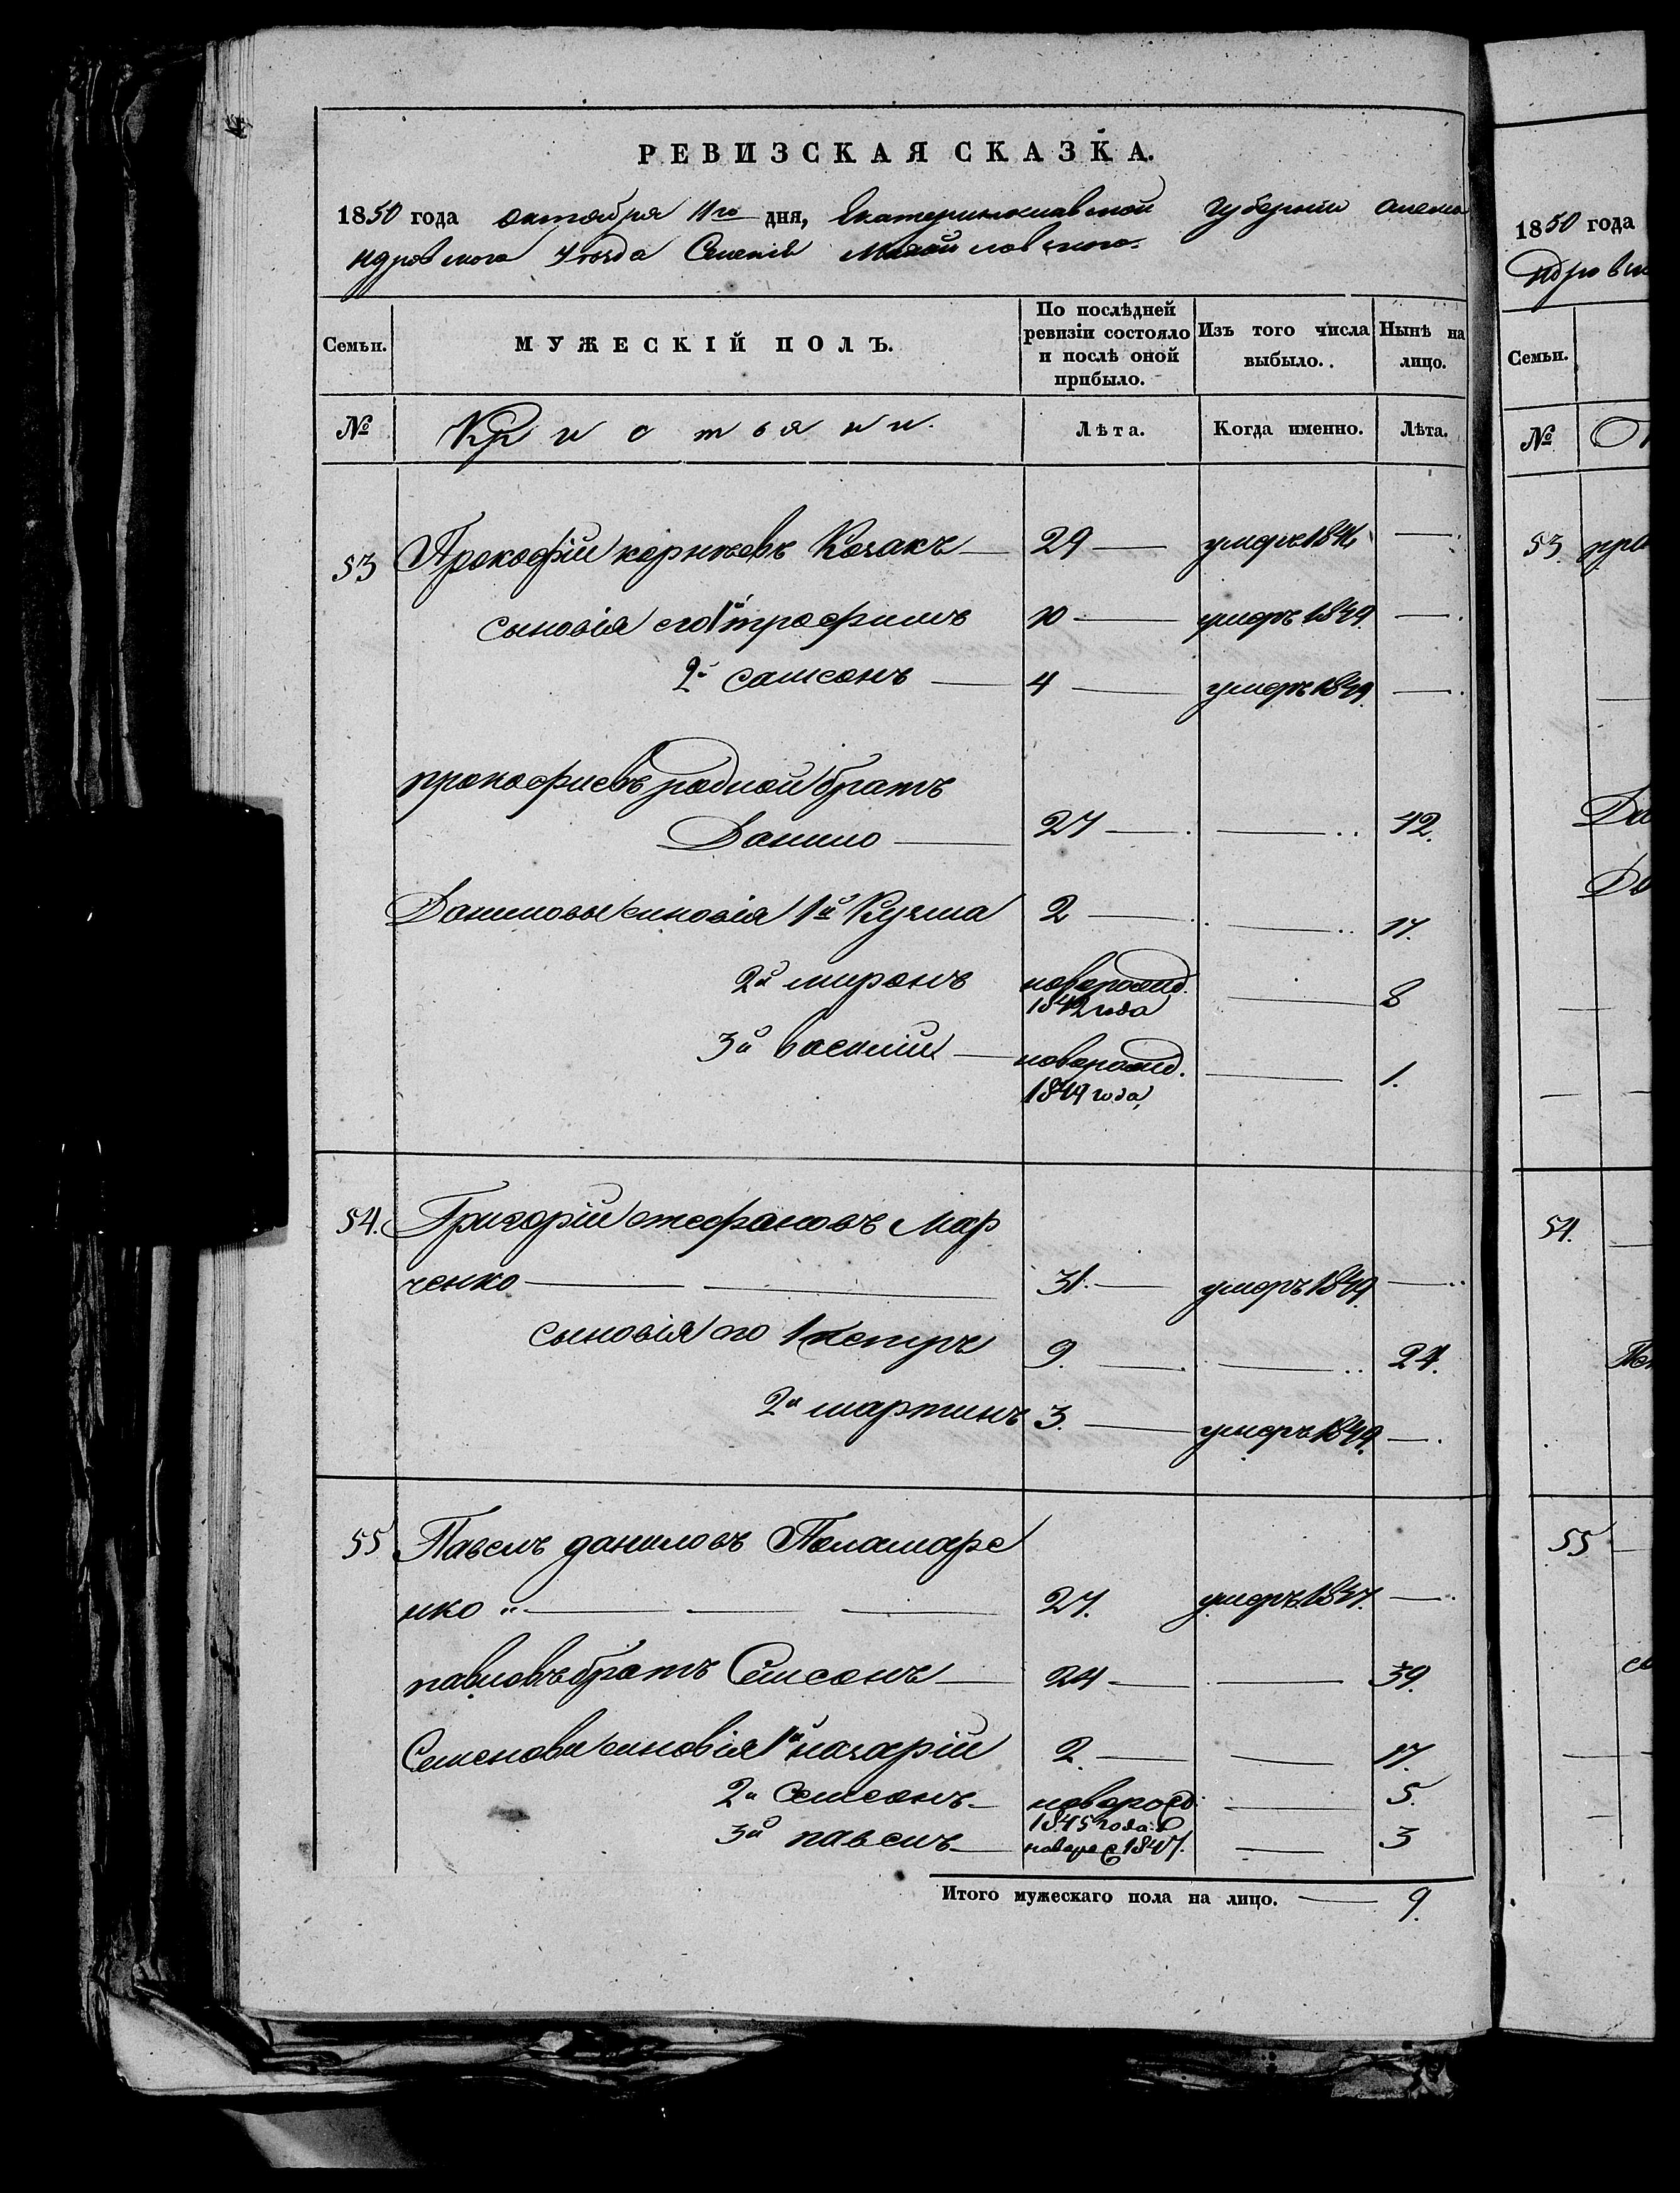 РЕВИЗСКАЯ СКАЗКА.
1850 года октября 11го дня, Екатеринославской губернии Алекса
ндровского Уезда Селения
Семьи. МУЖЕСКІЙ ПОЛЪ. По послѣдней ревизіи состояло и послѣ оной прибыло. Изъ того числа выбыло. Нынѣ на лицо.
№ Кристьяни. Лѣта. Когда именно. Лѣта.
53 Прокофій корнѣевъ Козакъ 29 умеръ 1846
сыновія его 1й трофимъ 10 умеръ 1849.
2й самсонъ 4 умеръ 1849.
прокофиевъ родной братъ
Данило 27 42.
Даниловы синовія 1й Кузма 2 17.
2й миронъ новорожд. 8
1842 года
3й василий новорожд. 1.
1849 года,
54. Григорій стефановъ Мар
ченко 31. умеръ 1849.
сыновія его 1 петръ 9. 24.
2й мартинъ 3. умеръ 1849.
55 Павелъ даниловъ Паламаре
нко 27. умеръ 1837.
павловъ братъ Семенъ 24 39.
Семенови синовія 1й назарій 2. 17.
2й Семенъ новорожд: 5.
1845 года:
3й павелъ 1847. 3
Итого мужескаго пола на лицо. 9.
1850 года
Семьи.
№
53
54.
55